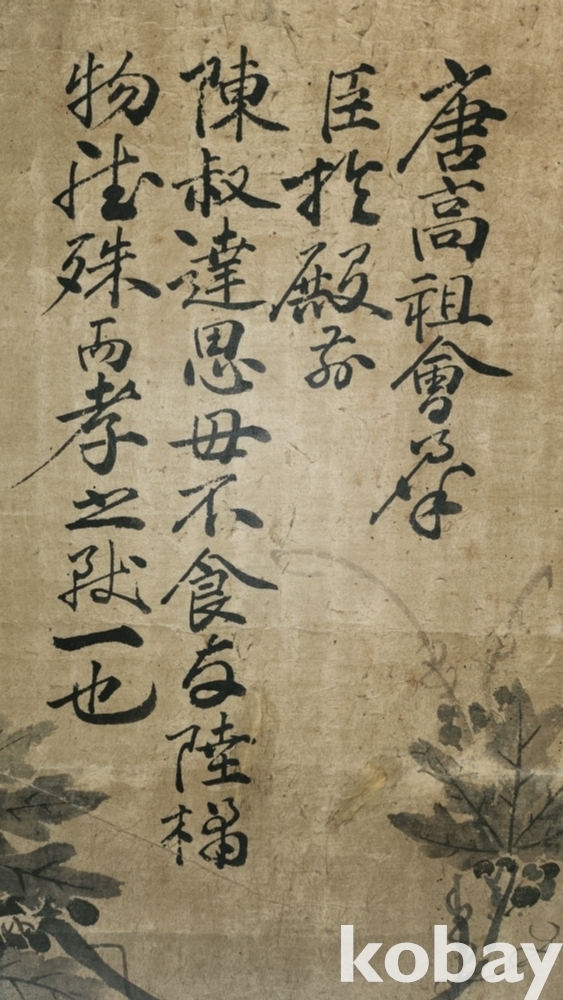 唐高祖會羣
臣於殿前
陳叔達思母不食与陸橘
物雖殊而孝之致一也
kobay